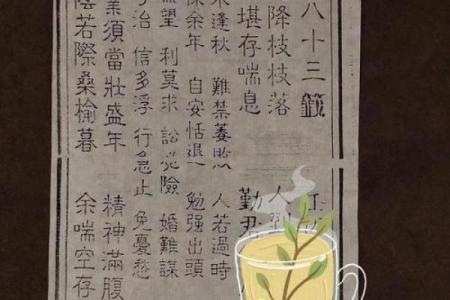 八十三籤
降枝枝落 人
堪存喘息 勤君
木逢秋 難禁萎敗 人若過時
保余年 自安恬退 勉强出頭
無望 利莫求 訟必險 婚難謀
可治 信多浮 行急止 免憂愁
業須當壯盛年 精神滿腹
陰若際桑榆暮 余喘空存